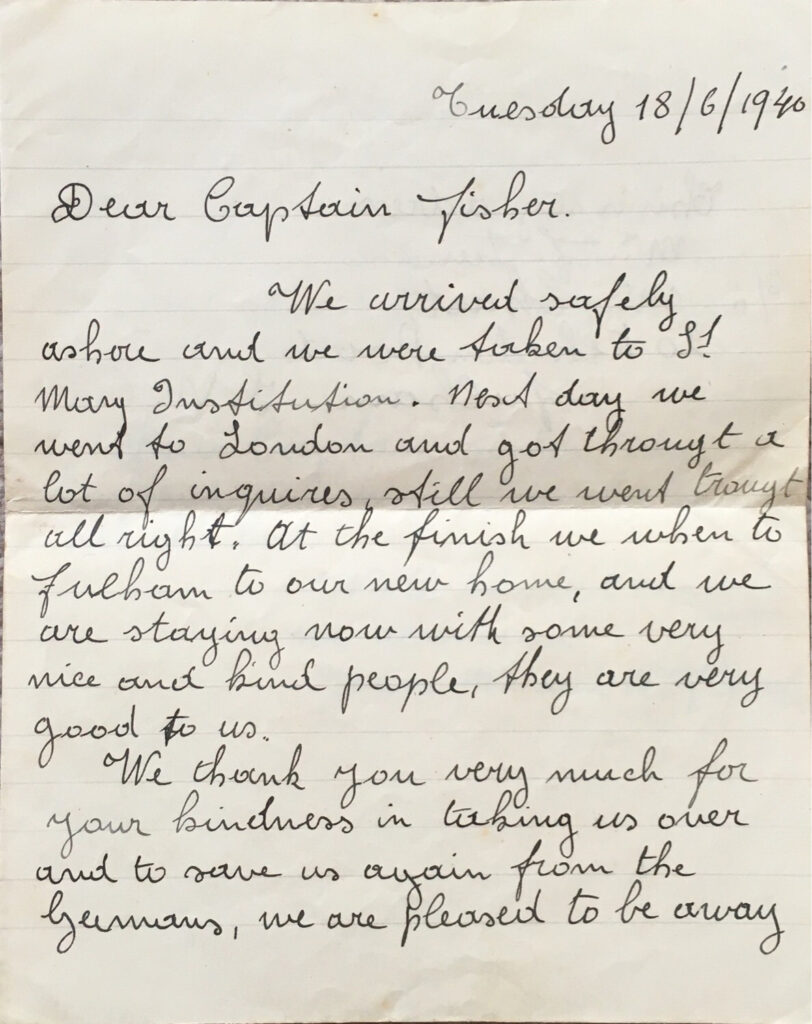 Tuesday 18/6/1940
Dear Captain Fisher.
We arrived safely
ashore and we were taken to St
Mary Institution. Next day we
went to London and got througt a
lot of inquires, still we went trougt
all right. At the finish we when to
Fulham to our new home, and we
are staying now with some very
nice and kind people, they are very
good to us.
We thank you very much for
your kindness in taking us over
and to save us again from the
Germans, we are pleased to be away